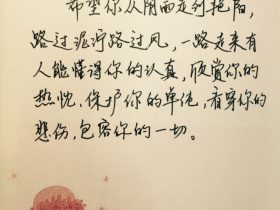 希望你从阴雨走到艳阳，
路过泥泞路过风，一路走来有
人能懂得你的认真，欣赏你的
热忱、保护你的单纯，看穿你的
悲伤，包容你的一切。